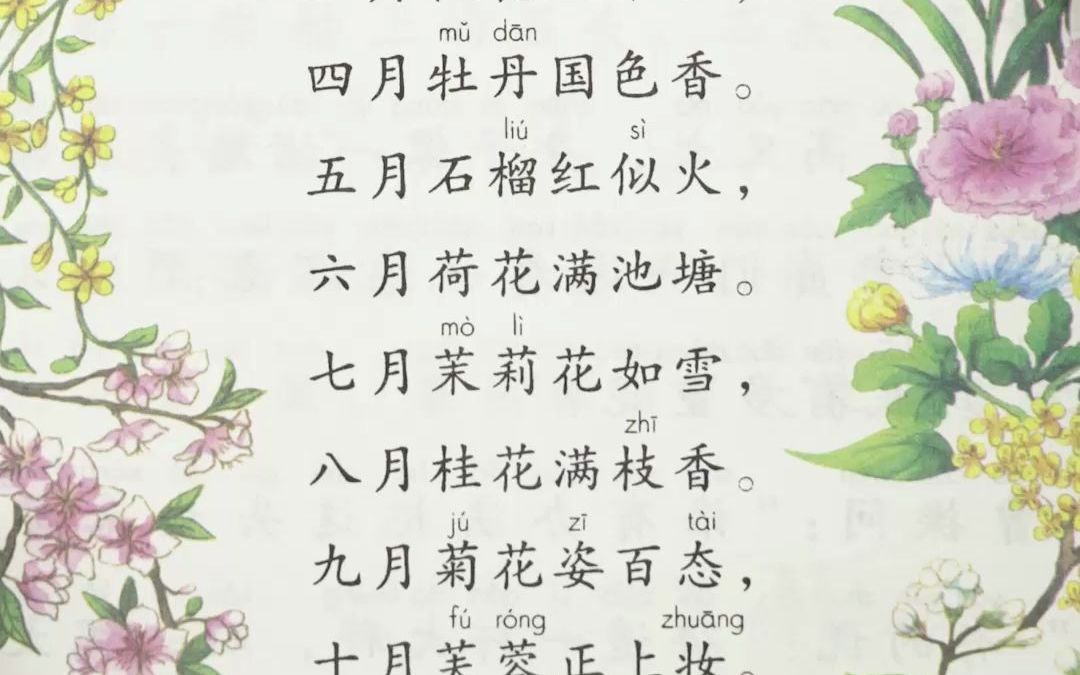 mǔ dān
四月牡丹国色香。
liú sì
五月石榴红似火，
六月荷花满池塘。
mò lì
七月茉莉花如雪，
zhī
八月桂花满枝香。
jú zī tài
九月菊花姿百态，
fú róng zhuāng
十月芙蓉正上妆。